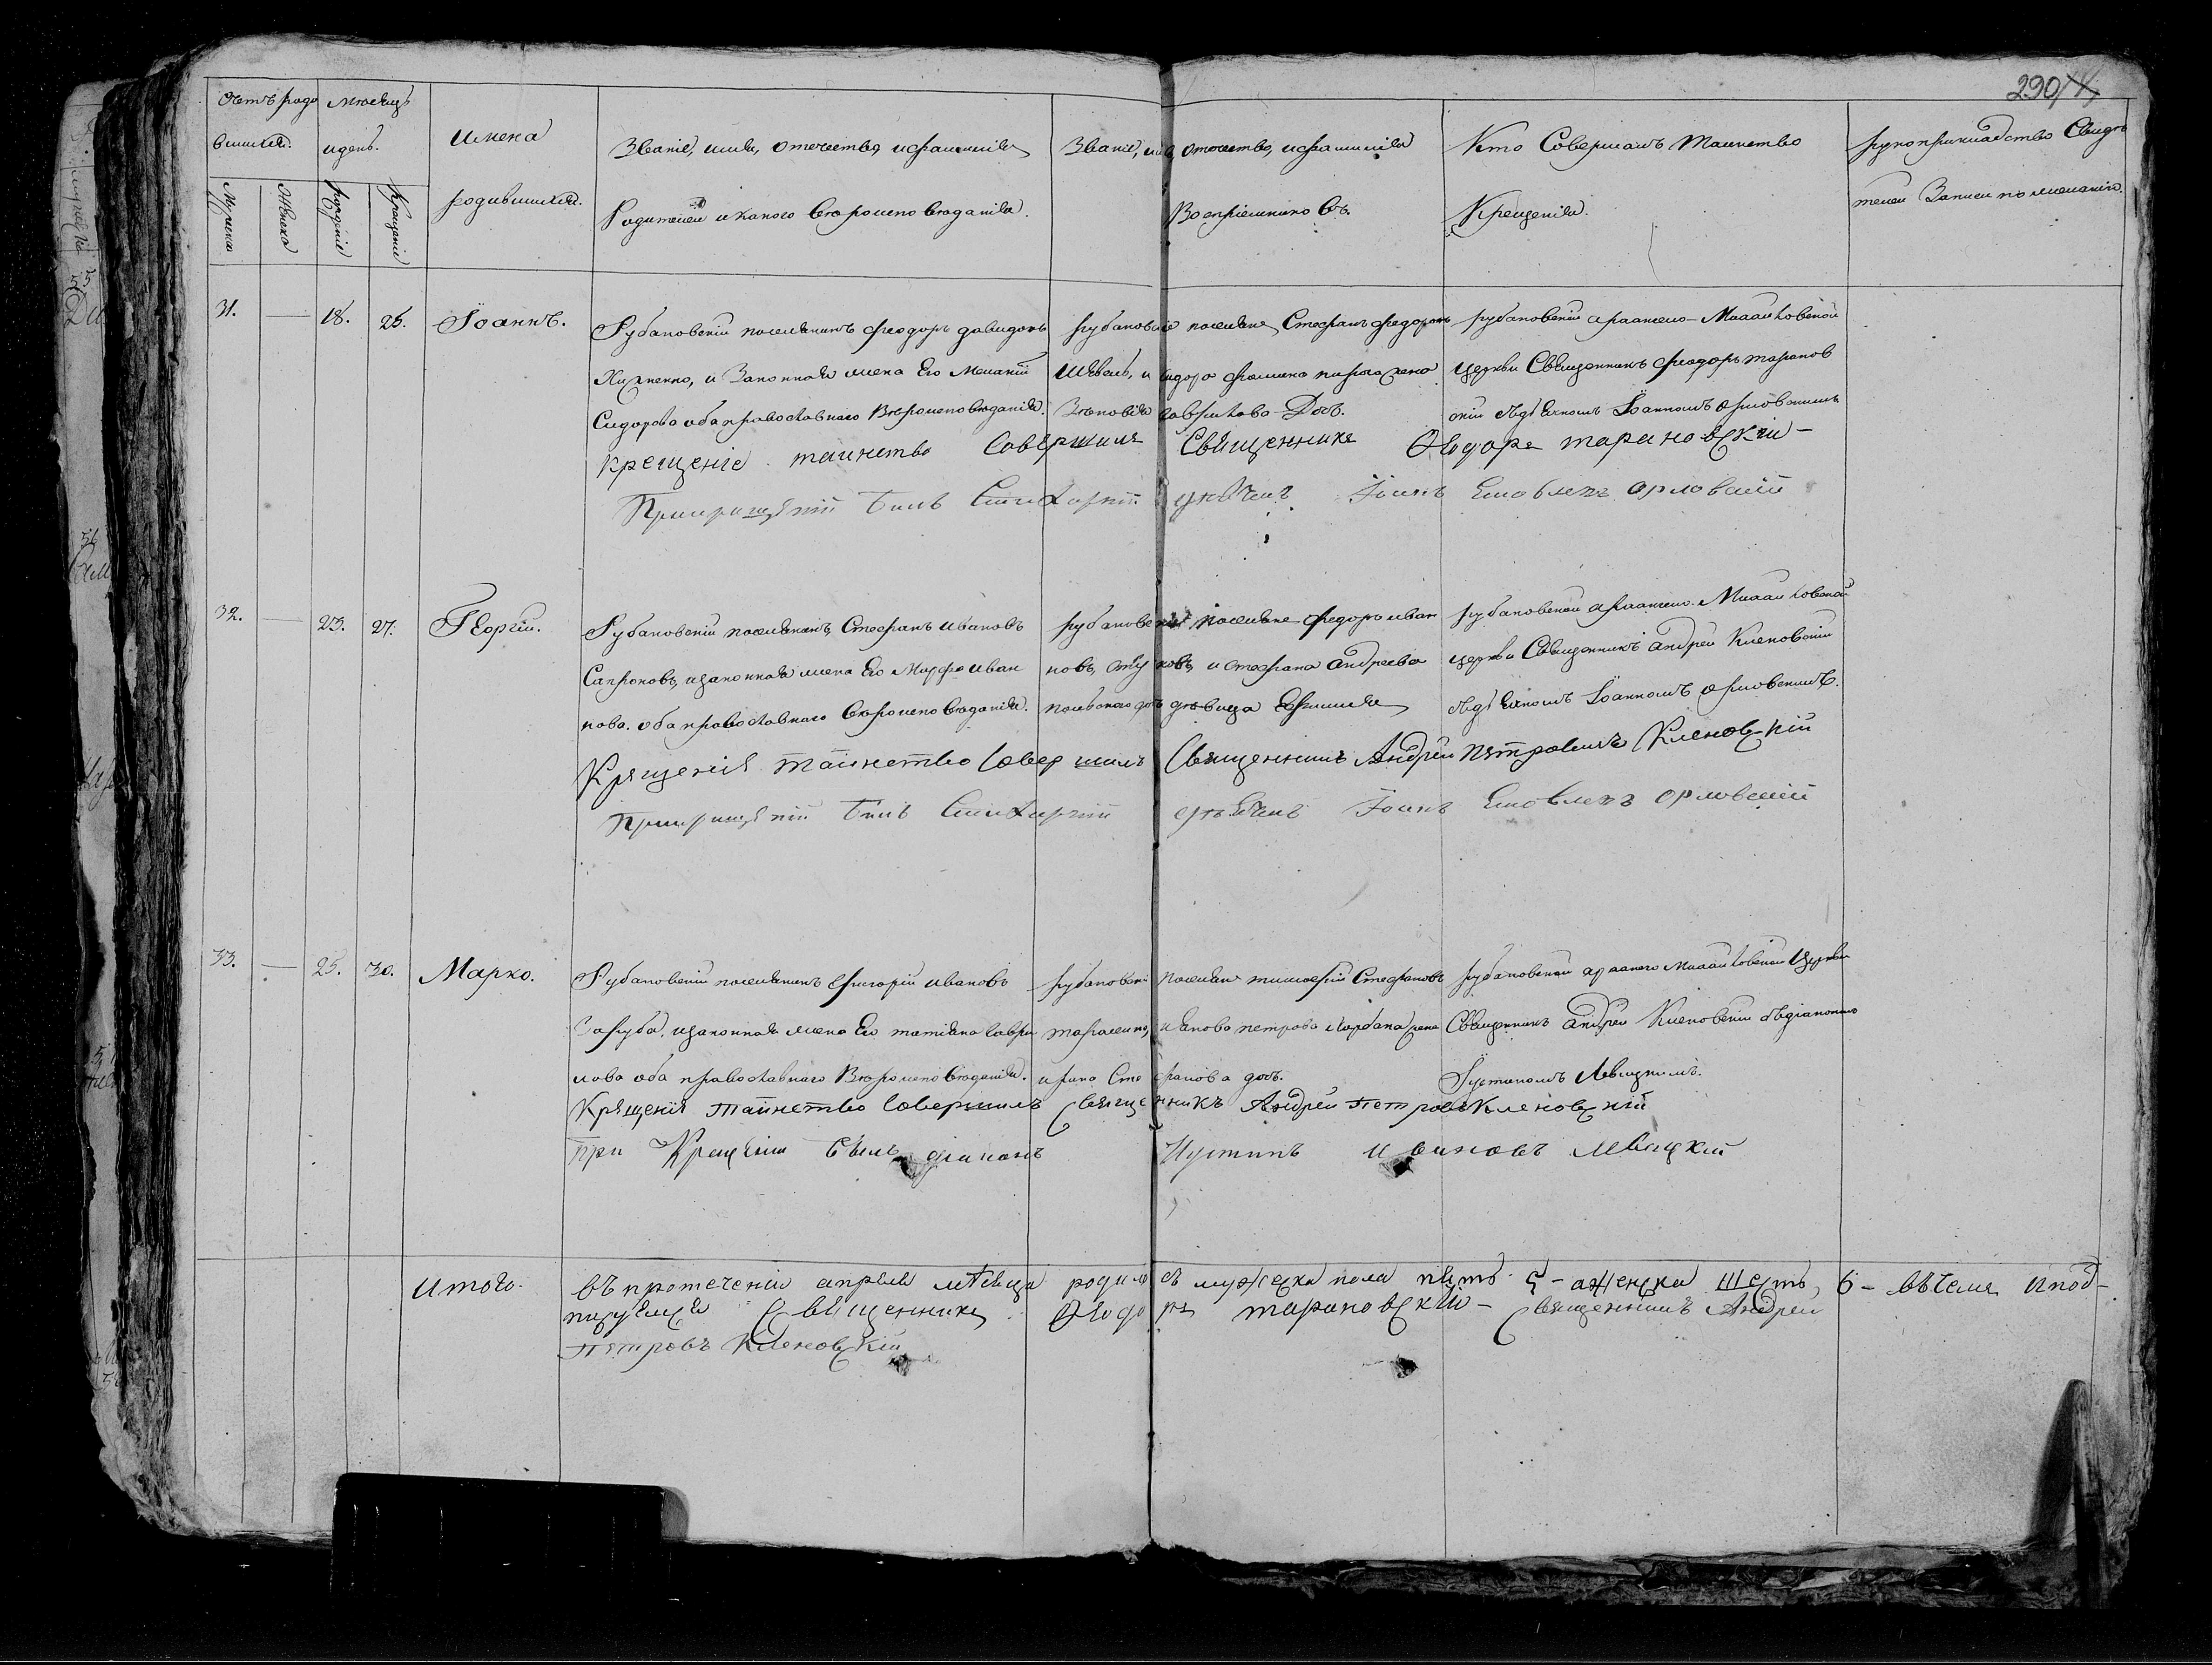 290
Счетъ роди
вшихся.
Мѣсяцъ
и день.
Мужеска
Женска
рожденія
крещенія
Имена
родившихся.
Званіе, имя, отечество, и фамилія
Родителей и какого вѣроисповѣданія.
Званіе, имя, отечество, и фамилія
Воспріемниковъ.
Кто Совершалъ Таинство
Крещенія.
рукоприкладство Свидѣ
телей Записи по желанію.
31. — 18. 25. Іоаннъ.
Рубановскій поселянинъ Феодоръ давидовъ
и Законная жена Его Меланія
Сидорова оба православнаго Вѣроисповѣданія.
рубановскіе поселяне, Стефанъ Федоровъ
Швець, и
Зѣновія гаврилова Дочь.
рубановской архангело-Михайловской
церкви Священникъ Феодоръ таранов
скій съ дьячкомъ Іоанномъ орловскимъ
крещеніе таинство Совершилъ Священникъ Ѳеодоръ тарановскій —
При крещеніи билъ Стихарній дячокъ Іоанъ Яковлевъ орловскій
32. — 23. 27. Георгій.
Рубановскій поселянинъ, Стефанъ ивановъ
Сапроновъ, и законная жена Его Марфа иван
нова. оба православнаго вѣроисповѣданія.
рубановскіе поселяне федоръ иван
новъ, и стефана андреева
дѣвица Ефимія
рубановской архангело-Михайловской
церкви Священникъ андрей Кленовскій
съ дьячкомъ Іоанномъ орловскимъ.
Крященія таинство Совершилъ Священникъ Андрей Петровичъ Кленовскій
При крещеніи билъ Стихарній дячокъ Іоанъ Яковлевъ орловскій
33. — 25. 30. Марко.
Рубановскій поселянинъ григорій ивановъ
Заруба, и законная жена Его татіяна гаври
лова оба православнаго Вѣроисповѣданія.
рубановскій поселян тимофій Стефановъ
иванова петрова
ирина Стефанова дочь.
рубановской арханге Михайловской Церкви
Священникъ андрей Кленовскій съ діакономъ
Іустиномъ Левицкимъ.
Крященія таинство Совершилъ Священникъ Андрей Петровъ Кленовскій
При Крещеніи былъ діаконъ Иустинъ Ивановъ Левицкій
Итого.
въ протеченіи апреля мѣсяца родилось мужеска пола пять 5 — а женска шесть, 6 — въ чемъ и под-
писуемся Священникъ Ѳеодоръ тарановскій — Священникъ Андрей
Петровъ Кленовскій